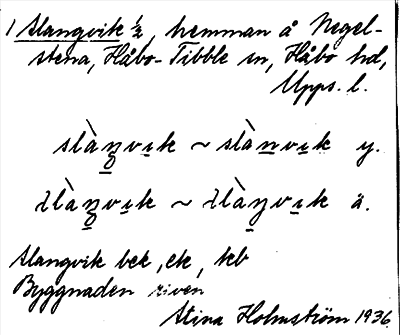 1 Slangvik ½, hemman å Negel-
stena, Håbo-Tibble sn, Håbo hd,
Upps. l.
slàŋvik ~ slànvik y.
slàŋvik ~ slàŋvik ä.
Slangvik bek, ek, kb
Byggnaden riven
Stina Holmström 1936